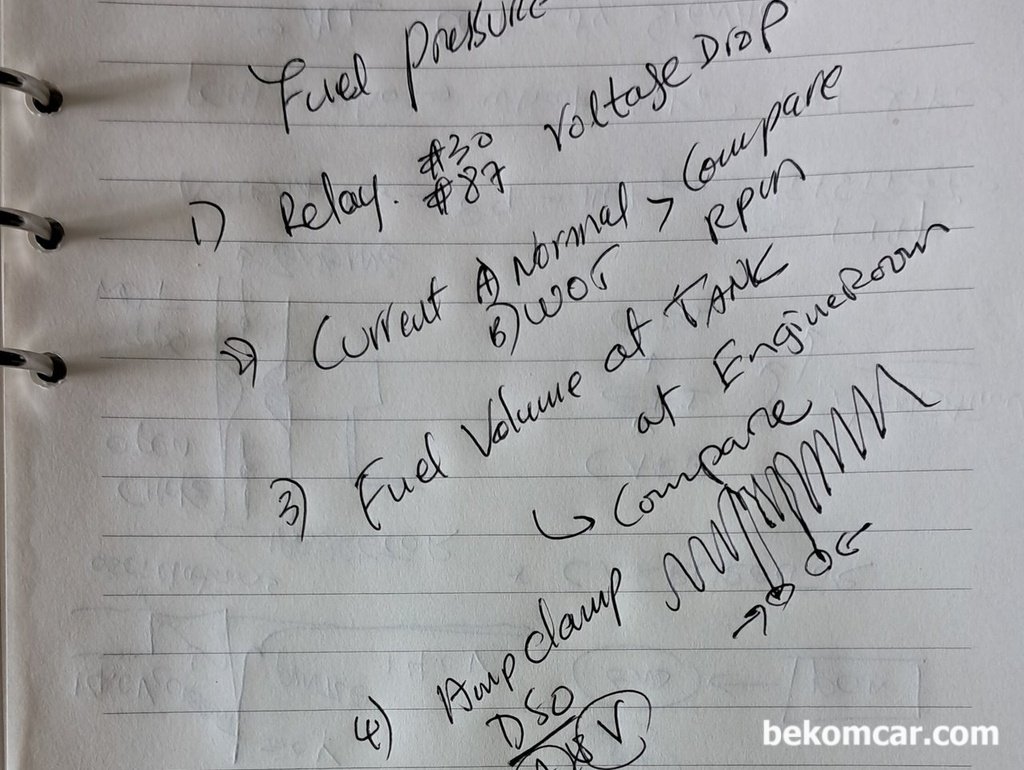 Fuel Pressure
1) Relay. #30 Voltage Drop
#87
2) Current A) Normal > Compare
B) WOT RPM
3) Fuel Volume at TANK
at Engine Room
↳ Compare
4) Amp clamp
DSO
V
bekomcar.com